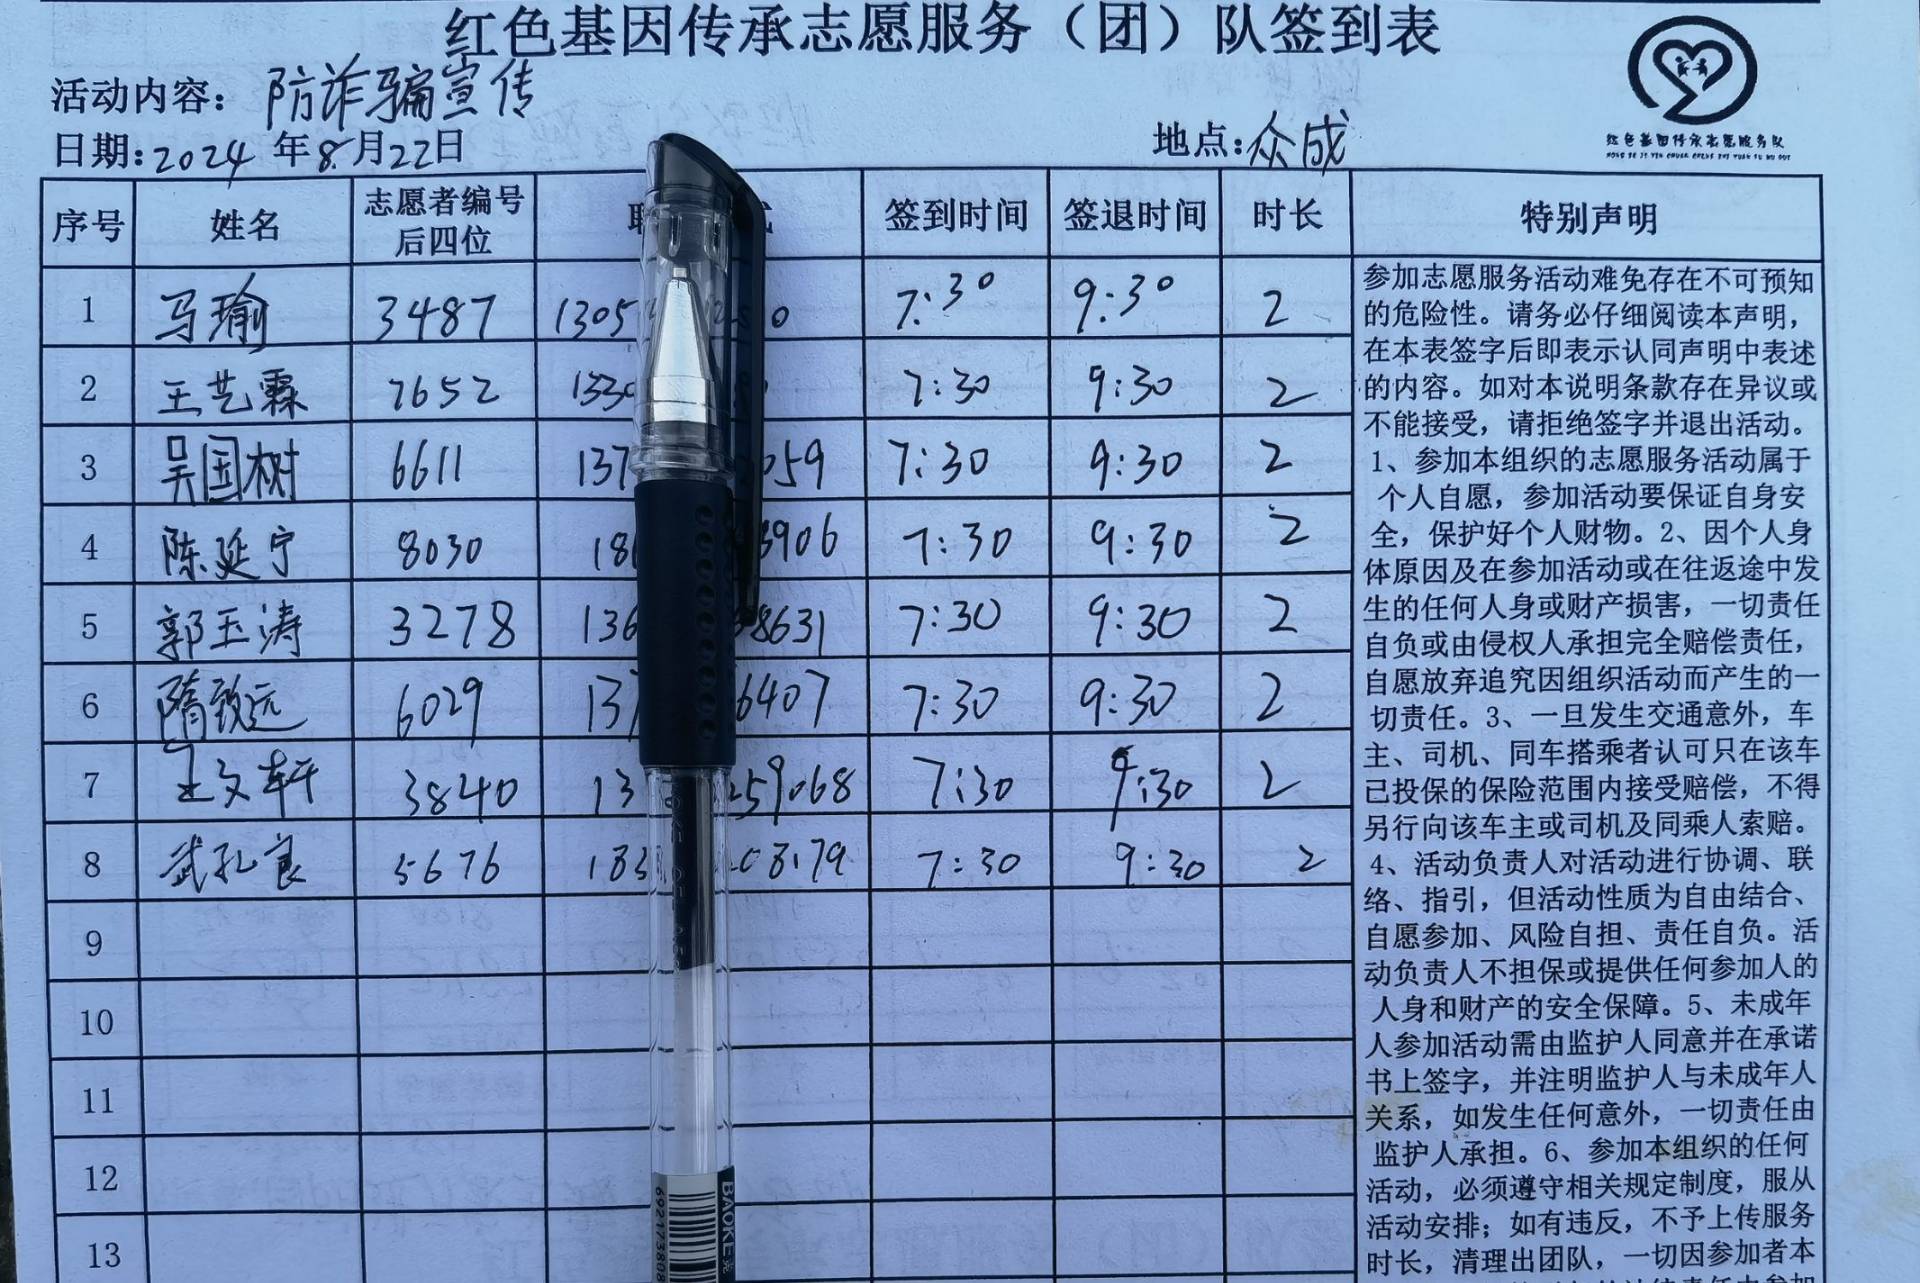 红色基因传承志愿服务（团）队签到表
活动内容：防诈骗宣传
日期:2024年8月22日 地点:众成
红色基因传承志愿服务队
HONG SE JI YIN CHUAN CHENG ZHI YUAN FU WU DUI
序号 姓名 志愿者编号后四位 签到时间 签退时间 时长 特别声明
1 马瑜 3487 1305 0 7:30 9:30 2
2 王艺霖 7652 1330 7:30 9:30 2
3 吴国树 6611 137 059 7:30 9:30 2
4 陈延宁 8030 18 3906 7:30 9:30 2
5 郭玉涛 3278 136 8631 7:30 9:30 2
6 隋致远 6029 137 6407 7:30 9:30 2
7 王文轩 3840 13 259068 7:30 9:30 2
8 武孔良 5676 183 08179 7:30 9:30 2
9
10
11
12
13
参加志愿服务活动难免存在不可预知
的危险性。请务必仔细阅读本声明，
在本表签字后即表示认同声明中表述
的内容。如对本说明条款存在异议或
不能接受，请拒绝签字并退出活动。
1、参加本组织的志愿服务活动属于
个人自愿，参加活动要保证自身安
全，保护好个人财物。2、因个人身
体原因及在参加活动或在往返途中发
生的任何人身或财产损害，一切责任
自负或由侵权人承担完全赔偿责任，
自愿放弃追究因组织活动而产生的一
切责任。3、一旦发生交通意外，车
主、司机、同车搭乘者认可只在该车
已投保的保险范围内接受赔偿，不得
另行向该车主或司机及同乘人索赔。
4、活动负责人对活动进行协调、联
络、指引，但活动性质为自由结合、
自愿参加、风险自担、责任自负。活
动负责人不担保或提供任何参加人的
人身和财产的安全保障。5、未成年
人参加活动需由监护人同意并在承诺
书上签字，并注明监护人与未成年人
关系，如发生任何意外，一切责任由
监护人承担。6、参加本组织的任何
活动，必须遵守相关规定制度，服从
活动安排；如有违反，不予上传服务
时长，清理出团队，一切因参加者本
BAOKE
692173808